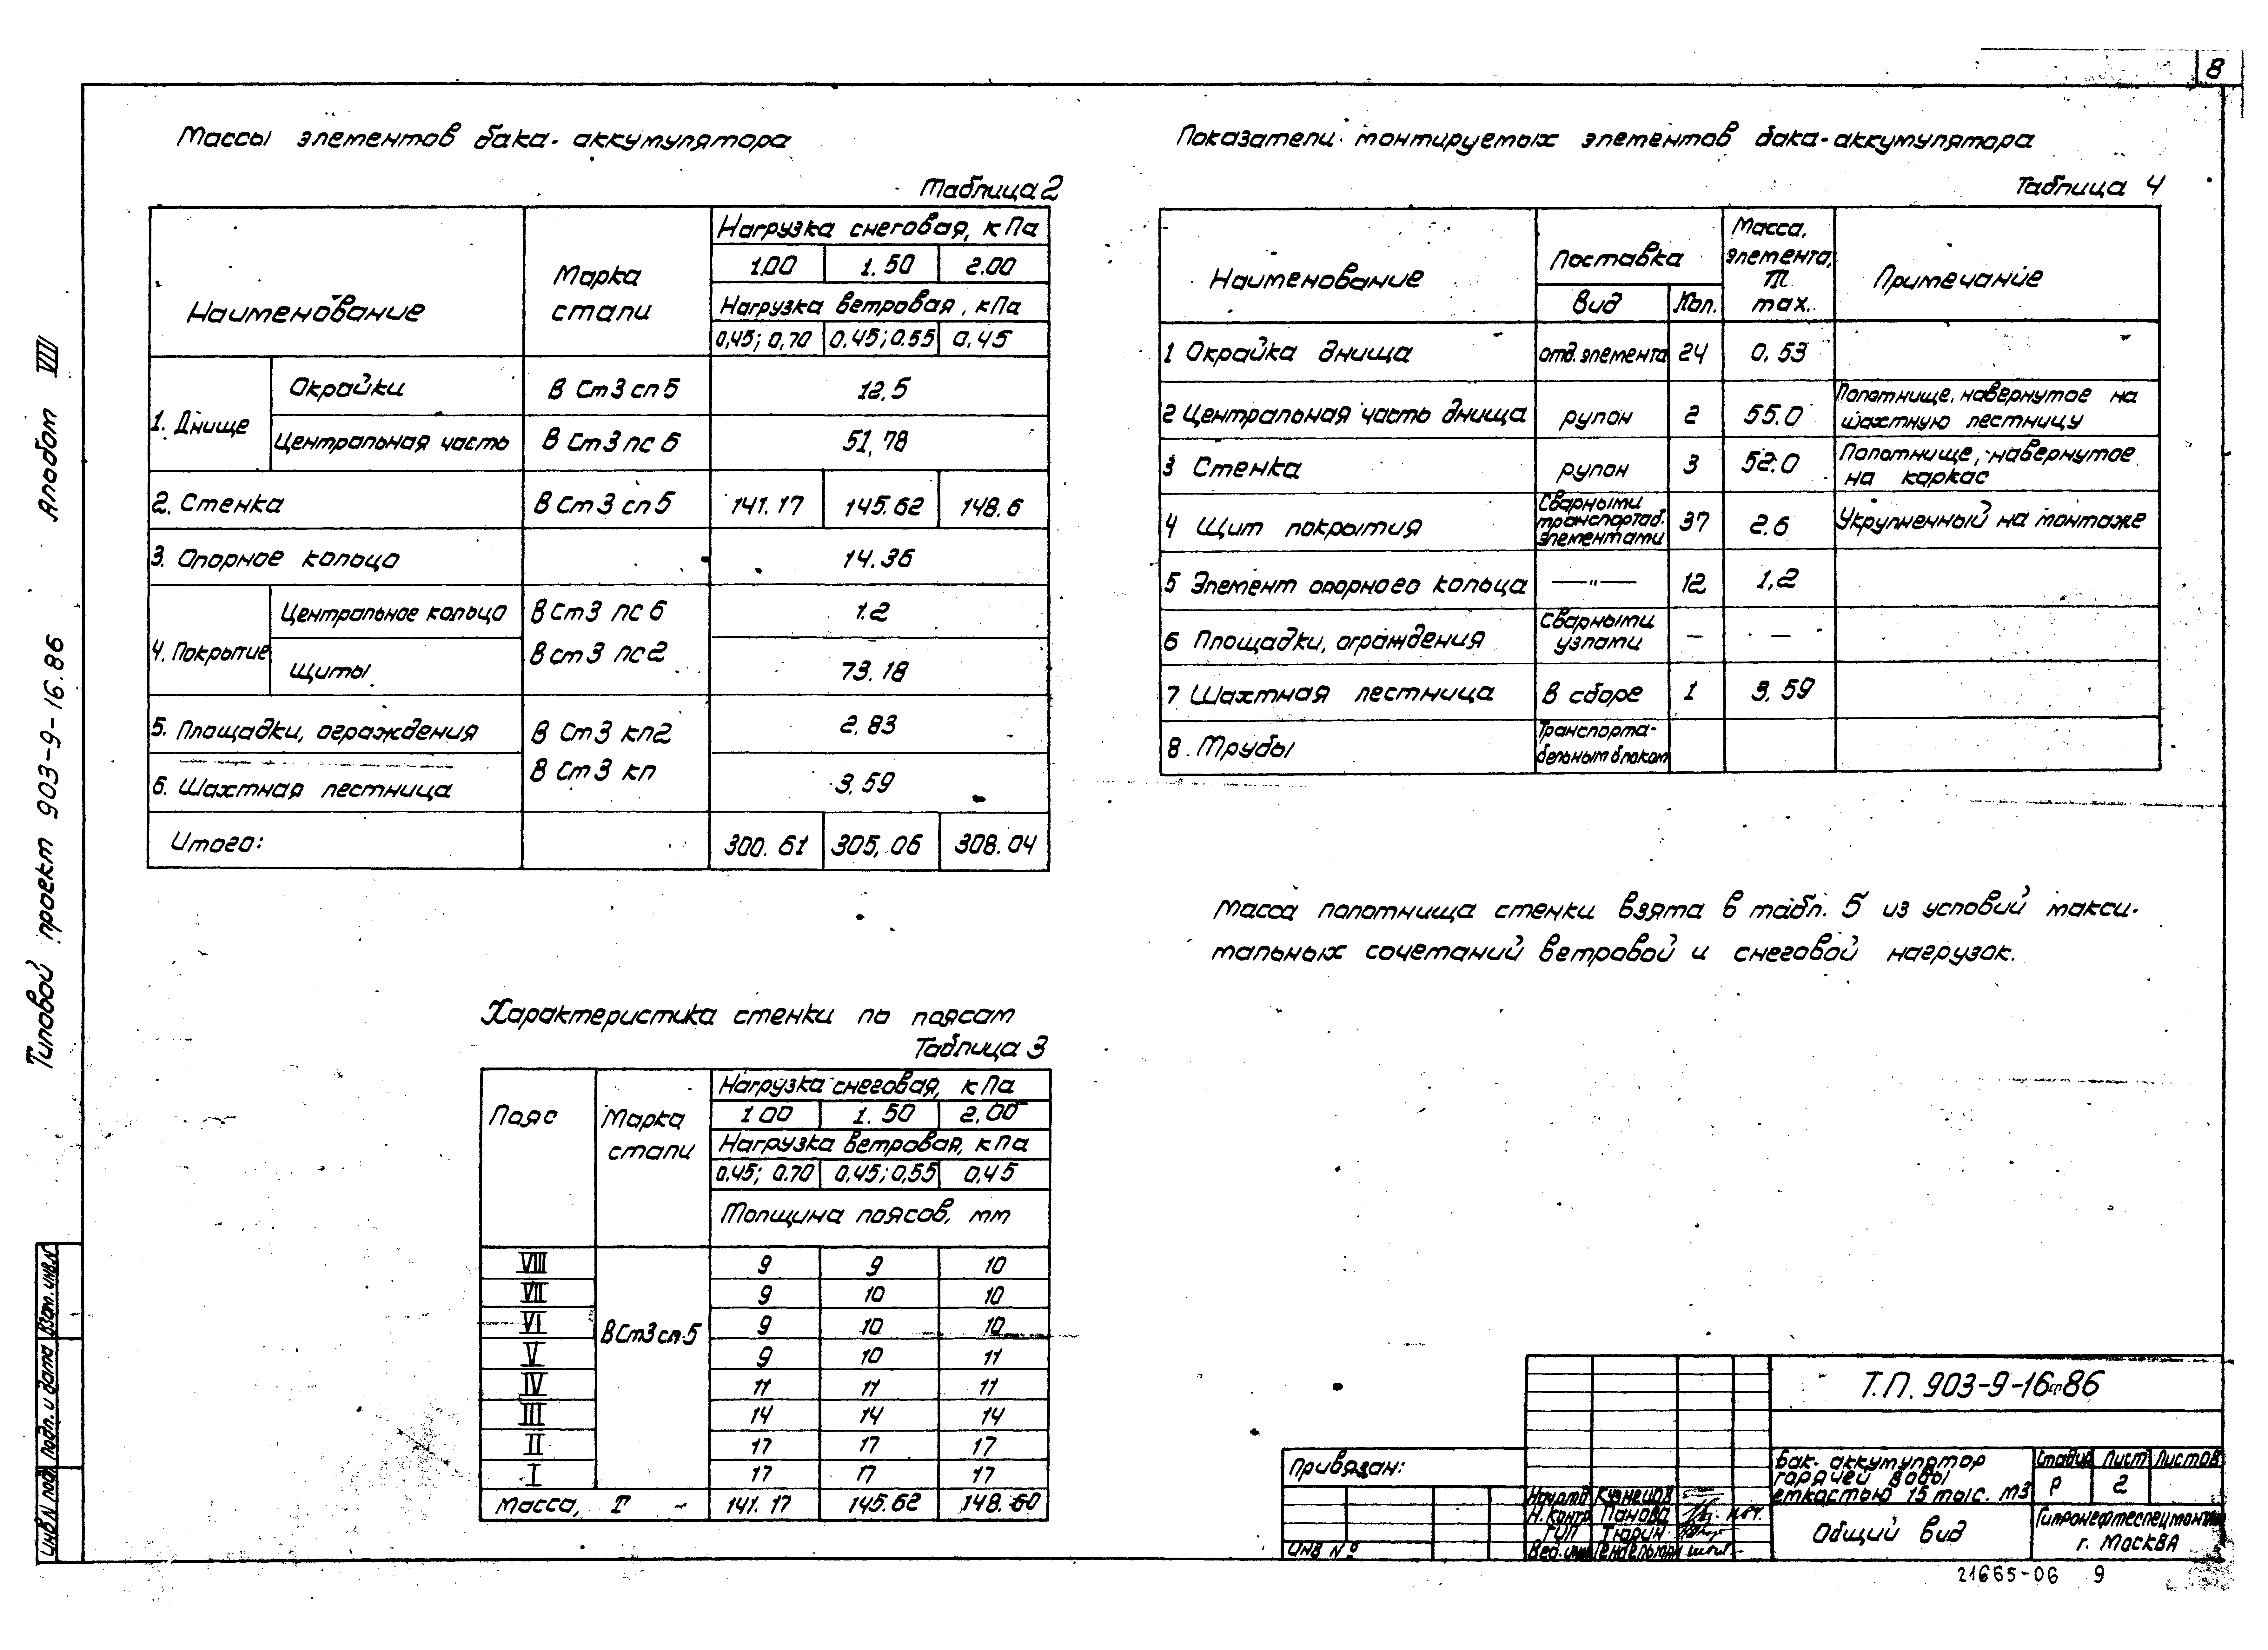 8
Массы элементов бака-аккумулятора
Таблица 2
Наименование
Марка стали
Нагрузка снеговая, кПа
1.00 1.50 2.00
Нагрузка ветровая, кПа
0,45; 0,70 0,45; 0.55 0,45
1. Днище
Окрайки В Ст3 сп5 12,5
Центральная часть В Ст3 пс 6 51,78
2. Стенка В Ст3 сп5 141.17 145.62 148.6
3. Опорное кольцо 14.36
4. Покрытие
Центральное кольцо В Ст3 пс 6 1.2
Щиты В ст3 пс2 73.18
5. Площадки, ограждения В Ст3 кп2 2.83
6. Шахтная лестница В Ст3 кп 3,59
Итого: 300.61 305,06 308.04
Показатели монтируемых элементов бака-аккумулятора
Таблица 4
Наименование
Поставка
Вид Кол.
Масса, элемента, т max.
Примечание
1 Окрайка днища отд. элемента 24 0,53
2 Центральная часть днища рулон 2 55.0 Полотнище, навернутое на
шахтную лестницу
3 Стенка рулон 3 52.0 Полотнище, навернутое
на каркас
4 Щит покрытия Сварными
транспортаб.
элементами 37 2.6 Укрупненный на монтаже
5 Элемент опорного кольца —"— 12 1,2
6 Площадки, ограждения Сварными
узлами — —
7 Шахтная лестница В сборе 1 3,59
8. Трубы Транспорта-
бельным блоком
Масса полотнища стенки взята в табл. 5 из условий макси-
мальных сочетаний ветровой и снеговой нагрузок.
Характеристика стенки по поясам
Таблица 3
Пояс
Марка стали
Нагрузка снеговая, кПа
1 00 1.50 2,00
Нагрузка ветровая, кПа
0,45; 0.70 0,45; 0,55 0,45
Толщина поясов, мм
VIII 9 9 10
VII 9 10 10
VI 9 10 10
В Ст3 сп5
V 9 10 11
IV 11 11 11
III 14 14 14
II 17 17 17
I 17 17 17
Масса, Т 141.17 145.62 148.60
Типовой проект 903-9-16.86 Альбом VIII
Взам. инв. №
Подп. и дата
Инв. № подл.
Т.П. 903-9-16.86
Привязан:
Инв №
Нач. отд. Кузнецов
Н. контр. Панова
ГИП Тюрин
Вед. инж. Гендельман
Бак-аккумулятор
горячей воды
емкостью 15 тыс. м3
Стадия Лист Листов
Р 2
Общий вид
Гипронефтеспецмонтаж
г. Москва
21665-06 9